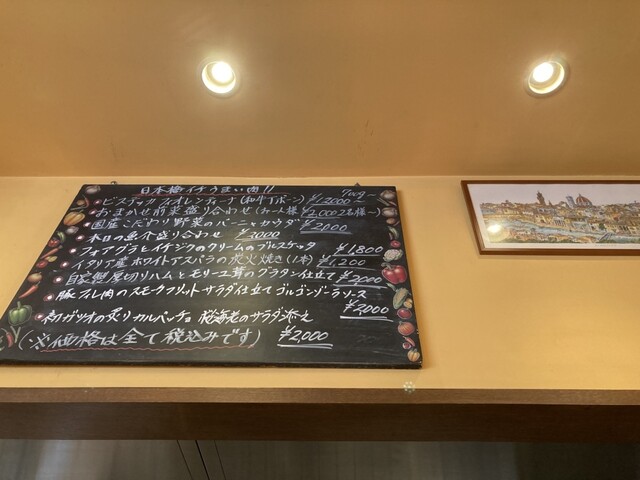 日本橋イチうまい肉!! 700g〜
ビステッカ フィオレンティーナ(和牛Tボーン) ¥12000〜
おまかせ前菜盛り合わせ(カート様 ¥2,000 2名様〜)
国産こだわり野菜のバーニャカウダ ¥2,000
本日の魚介盛り合わせ ¥3000
フォアグラとイチジクのクリームのブルスケッタ ¥1,800
イタリア産ホワイトアスパラの炭火焼き(1本) ¥1,200
自家製厚切りハムとモリーユ茸のグラタン仕立て ¥3,000
豚フィレ肉のスモークフリット サラダ仕立て ゴルゴンゾーラソース ¥2,000
初ガツオの炙りカルパッチョ 桜海老のサラダ添え ¥2,000
(※価格は全て税込みです)